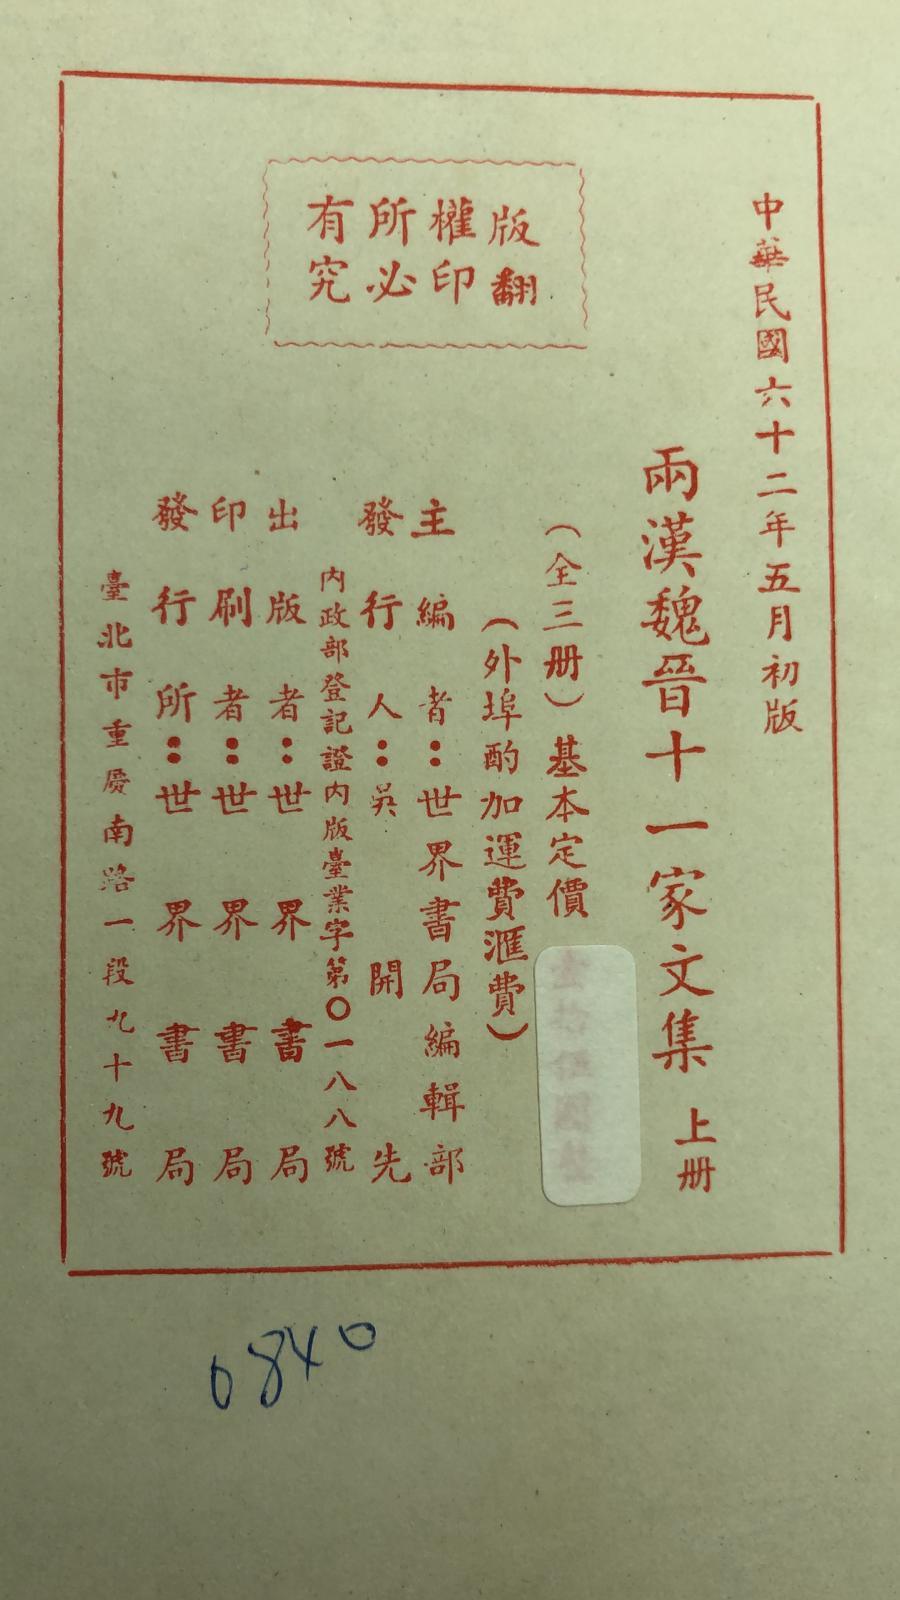 中華民國六十二年五月初版
兩漢魏晉十一家文集 上册
（全三册）基本定價
（外埠酌加運費滙費）
主編者：世界書局編輯部
發行人：吳開先
內政部登記證內版臺業字第〇一八八號
出版者：世界書局
印刷者：世界書局
發行所：世界書局
臺北市重慶南路一段九十九號
版權所有
翻印必究
0840